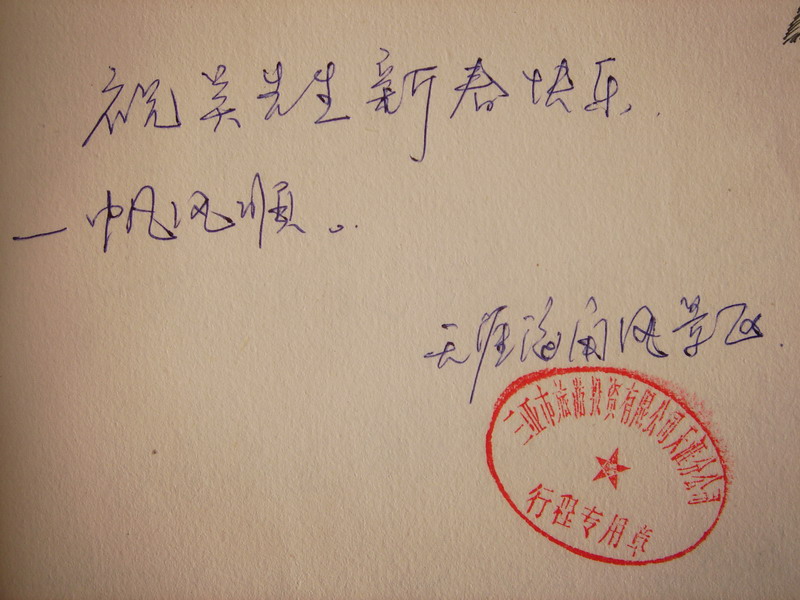 祝吴先生新春快乐.
一帆风顺。
天涯海角风景区.
三亚市旅游投资有限公司天涯分公司
行程专用章